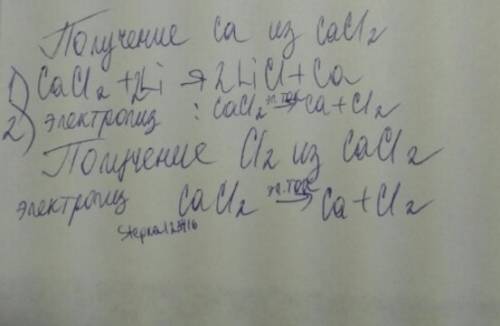 Получение Ca из CaCl2
1) CaCl2 + 2Li → 2LiCl + Ca
2) электролиз : CaCl2 эл.ток → Ca + Cl2
Получение Cl2 из CaCl2
электролиз CaCl2 эл.ток → Ca + Cl2